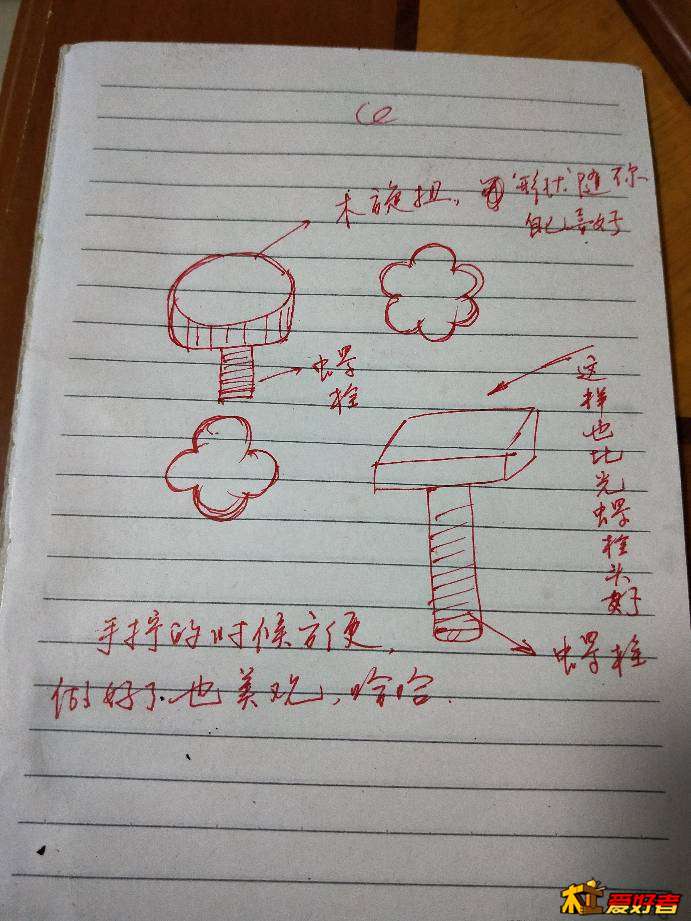 木旋扭,形状随你
自己喜好
螺
栓
这样也比光螺栓头好
螺栓
手拧的时候方便,
做好了也美观,哈哈.
木工爱好者